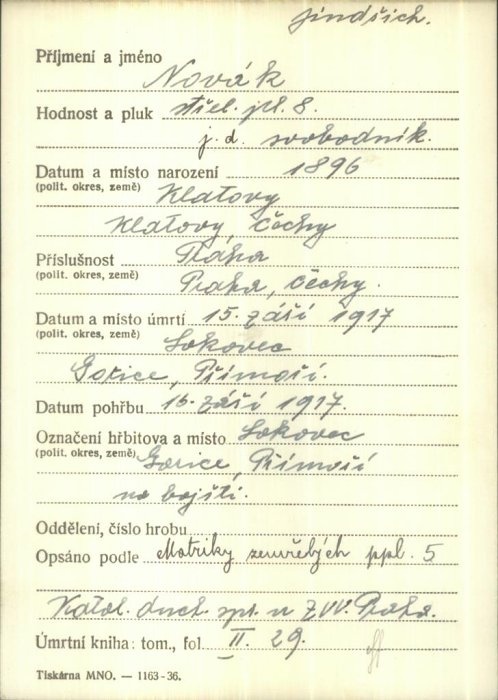 Jindřich.
Příjmení a jméno
Novák
Hodnost a pluk střel. pl. 8.
j. d. svobodník.
Datum a místo narození 1896
(polit. okres, země) Klatovy
Klatovy, Čechy
Příslušnost Praha
(polit. okres, země) Praha, Čechy.
Datum a místo úmrtí 15. září 1917
(polit. okres, země) Lokovec
Gorice, Přímoří.
Datum pohřbu 16. září 1917.
Označení hřbitova a místo Lokovec
(polit. okres, země) Gorice, Přímoří
na bojišti.
Oddělení, číslo hrobu
Opsáno podle Matriky zemřelých ppl. 5
Katol. duch. spr. u ZVV. Praha.
Úmrtní kniha: tom., fol. II. 29.
Tiskárna MNO. — 1163-36.